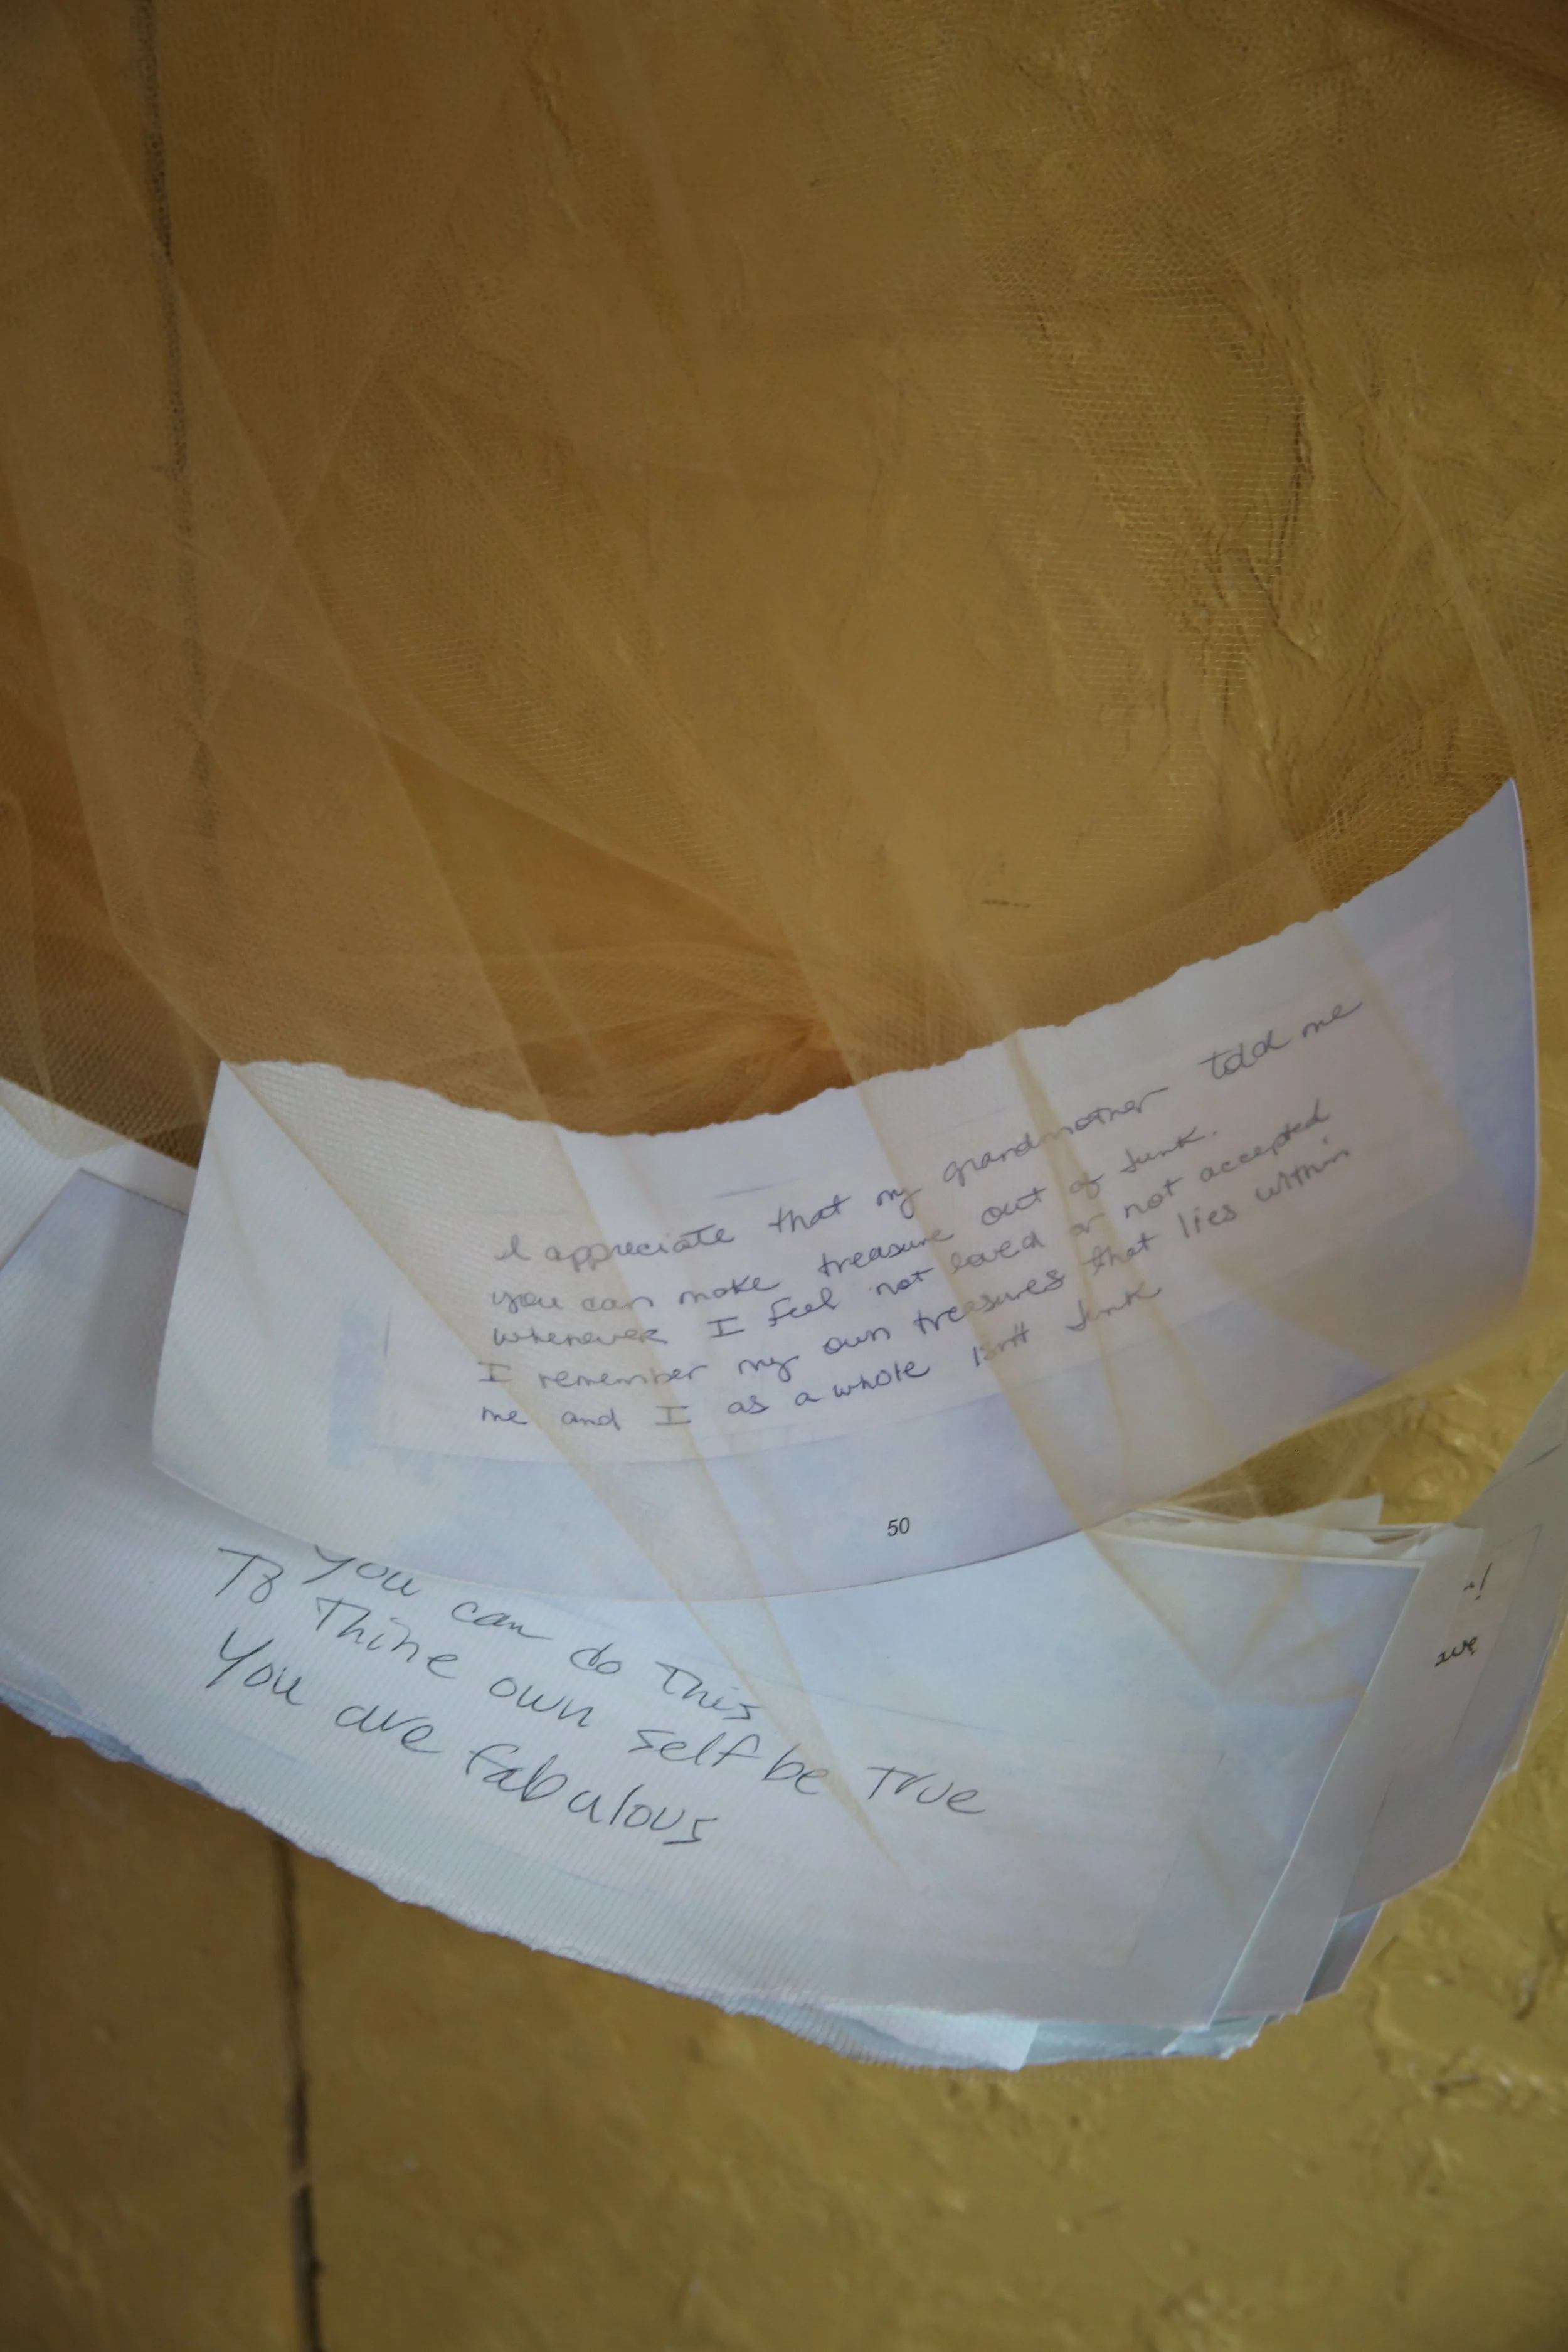 I appreciate that my grandmother told me
you can make treasure out of junk.
whenever I feel not loved or not accepted
I remember my own treasures that lies within
me and I as a whole isn't junk
50
You can do this
To Thine own self be True
You are fabulous